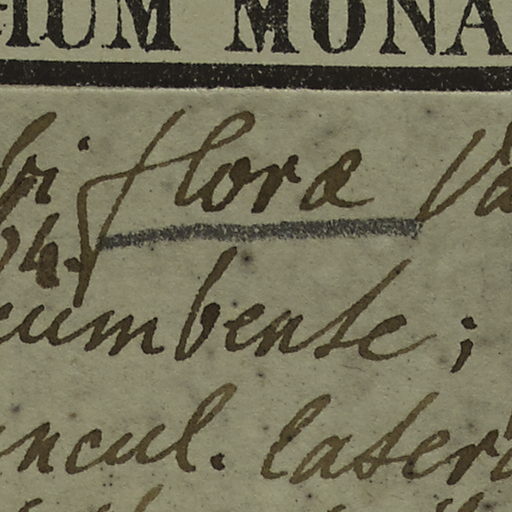 IUM MONA
floræ Va
04.
cumbente;
uncul. later